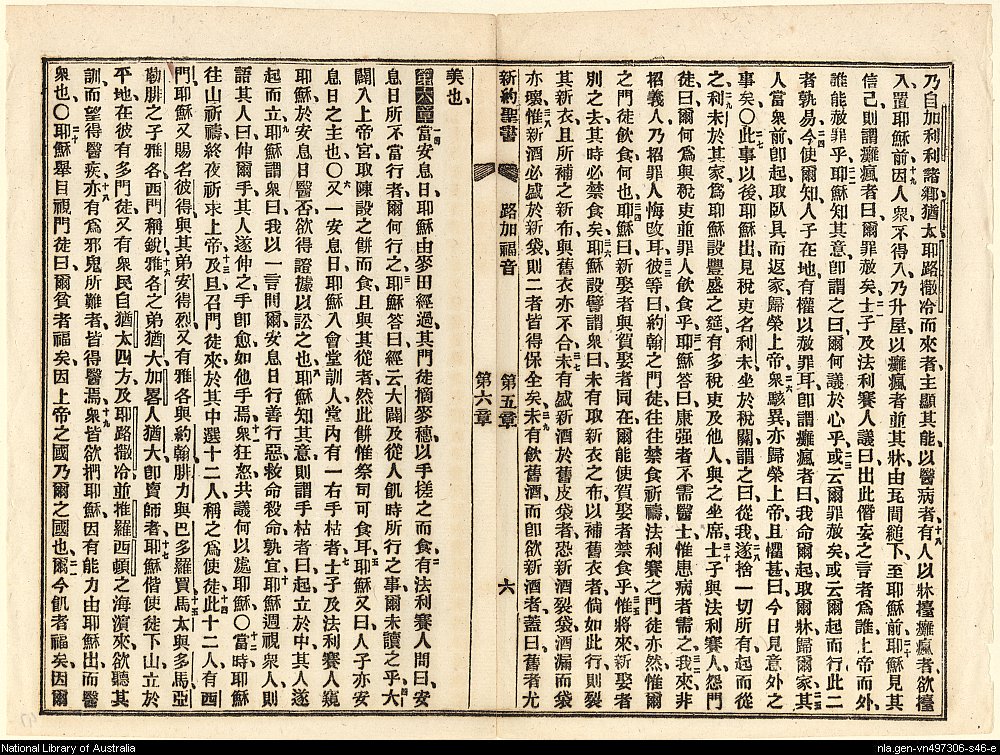 乃自加利利諸鄉猶太耶路撒冷而來者主顯其能以醫病者十八有人以牀擡癱瘋者欲擡
入置耶穌前十九因人衆不得入乃升屋以癱瘋者並其牀由瓦間縋下至耶穌前二十耶穌見其
信已則謂癱瘋者曰爾罪赦矣二一士子及法利賽人議曰出此僭妄之言者爲誰上帝而外
誰能赦罪乎二二耶穌知其意卽謂之曰爾何議於心乎二三或云爾罪赦矣或云爾起而行此二
者孰易二四今使爾知人子在地有權以赦罪耳卽謂癱瘋者曰我命爾起取爾牀歸爾家二五其
人當衆前卽起取臥具而返家歸榮上帝二六衆駭異亦歸榮上帝且懼甚曰今日見意外之
事矣〇二七此事以後耶穌出見稅吏名利未坐於稅關謂之曰從我二八遂捨一切所有起而從
之二九利未於其家爲耶穌設豐盛之筵有多稅吏及他人與之坐席三十士子與法利賽人怨門
徒曰爾何爲與稅吏並罪人飲食乎三一耶穌答曰康强者不需醫士惟患病者需之三二我來非
招義人乃招罪人悔改耳三三彼等曰約翰之門徒往往禁食祈禱法利賽之門徒亦然惟爾
之門徒飲食何也三四耶穌曰新娶者與賀娶者同在爾能使賀娶者禁食乎三五惟將來新娶者
別之去其時必禁食矣三六耶穌設譬謂衆曰未有取新衣之布以補舊衣者倘如此行則裂
其新衣且所補之新布與舊衣亦不合三七未有盛新酒於舊皮袋者恐新酒裂袋酒漏而袋
亦壞三八惟新酒必盛於新袋則二者皆得保全矣三九未有飲舊酒而卽欲新酒者蓋曰舊者尤
新約聖書 路加福音 第五章 第六章 六
美也
第六章一當安息日耶穌由麥田經過其門徒摘麥穗以手搓之而食二有法利賽人問曰安
息日所不當行者爾何行之三耶穌答曰經云大闢及從人飢時所行之事爾未讀之乎四大
闢入上帝宮取陳設之餅而食且與其從者然此餅惟祭司可食耳五耶穌又曰人子亦安
息日之主也〇六又一安息日耶穌入會堂訓人堂內有一右手枯者七士子及法利賽人窺
耶穌於安息日醫否欲得證據以訟之也八耶穌知其意則謂手枯者曰起立於中其人遂
起而立九耶穌謂衆曰我以一言問爾安息日行善行惡救命殺命孰宜十耶穌週視衆人則
語其人曰伸爾手其人遂伸之手卽愈如他手焉十一衆狂怒共議何以處耶穌〇十二當時耶穌
往山祈禱終夜祈求上帝十三及旦召門徒來於其中選十二人稱之爲使徒十四此十二人有西
門耶穌又賜名彼得與其弟安得烈又有雅各與約翰腓力與巴多羅買十五馬太與多馬亞
勒腓之子雅各西門稱銳十六雅各之弟猶大加畧人猶大卽賣師者十七耶穌偕使徒下山立於
平地在彼有多門徒又有衆民自猶太四方及耶路撒冷並推羅西頓之海濱來欲聽其
訓而望得醫疾十八亦有爲邪鬼所難者皆得醫焉十九衆皆欲捫耶穌因有能力由耶穌出而醫
衆也〇二十耶穌舉目視門徒曰爾貧者福矣因上帝之國乃爾之國也二一爾今飢者福矣因爾
National Library of Australia
nla.gen-vn497306-s46-e